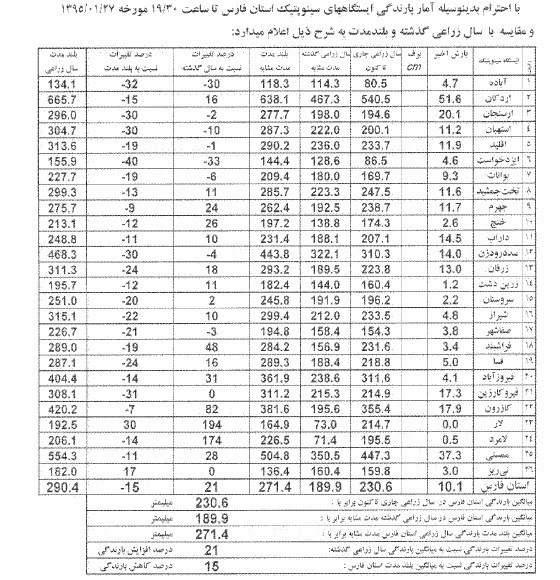 با احترام بدینوسیله آمار بارندگی ایستگاههای سینوپتیک استان فارس تا ساعت ١٩/٣٠ مورخه ١٣٩٥/٠١/٢٧
و مقایسه با سال زراعی گذشته و بلندمدت به شرح ذیل اعلام میدارد:
ردیف ایستگاه سینوپتیک بارش اخیر برف cm سال زراعی جاری تاکنون سال زراعی گذشته مدت مشابه بلند مدت مدت مشابه درصد تغییرات نسبت به سال گذشته درصد تغییرات نسبت به بلند مدت بلند مدت سال زراعی
١ آباده 4.7 80.5 114.3 118.3 -30 -32 134.1
٢ اردکان 51.6 540.5 467.3 638.1 16 -15 665.7
٣ ارسنجان 20.1 194.6 198.0 277.7 -2 -30 296.0
٤ استهبان 11.2 200.1 222.0 287.3 -10 -30 304.7
٥ اقلید 11.9 233.7 236.0 290.2 -1 -19 313.6
٦ ایزدخواست 4.6 86.5 128.6 144.4 -33 -40 155.9
٧ بوانات 9.3 169.7 180.0 209.4 -6 -19 227.7
٨ تخت جمشید 11.6 247.5 223.3 285.7 11 -13 299.3
٩ جهرم 11.7 238.7 192.5 262.4 24 -9 275.7
١٠ خنج 2.6 174.3 138.8 197.2 26 -12 213.1
١١ داراب 14.5 207.1 188.1 231.4 10 -11 248.8
١٢ سددرودزن 14.0 310.3 322.1 443.8 -4 -30 468.3
١٣ زرقان 13.0 223.8 189.5 293.2 18 -24 311.3
١٤ زرین دشت 1.2 160.4 144.0 182.4 11 -12 195.7
١٥ سروستان 2.2 196.2 191.9 245.8 2 -20 251.0
١٦ شیراز 4.8 233.5 212.0 299.4 10 -22 315.1
١٧ صفاشهر 3.8 154.3 158.4 194.8 -3 -21 226.7
١٨ فراشبند 3.4 231.6 156.9 284.2 48 -19 289.0
١٩ فسا 5.0 218.8 188.4 289.3 16 -24 287.1
٢٠ فیروزآباد 4.1 311.6 238.6 361.9 31 -14 404.4
٢١ قیروکارزین 17.3 214.9 215.3 311.2 0 -31 308.1
٢٢ کازرون 17.9 355.4 195.6 381.6 82 -7 420.2
٢٣ لار 0.0 214.7 73.0 164.9 194 30 192.5
٢٤ لامرد 0.5 195.5 71.4 226.5 174 -14 206.1
٢٥ ممسنی 37.3 447.3 350.5 504.8 28 -11 554.3
٢٦ نی ریز 3.0 159.8 160.4 136.4 0 17 182.0
استان فارس 10.1 230.6 189.9 271.4 21 -15 290.4
میانگین بارندگی استان فارس در سال زراعی جاری تاکنون برابر با : 230.6 میلیمتر
میانگین بارندگی استان فارس در سال زراعی گذشته مدت مشابه برابر با : 189.9 میلیمتر
میانگین بلند مدت بارندگی سال زراعی استان فارس مدت مشابه برابر با : 271.4 میلیمتر
درصد تغییرات بارندگی نسبت به میانگین بارندگی سال زراعی گذشته: 21 درصد افزایش بارندگی
درصد تغییرات بارندگی نسبت به میانگین بارندگی بلند مدت استان فارس : 15 درصد کاهش بارندگی